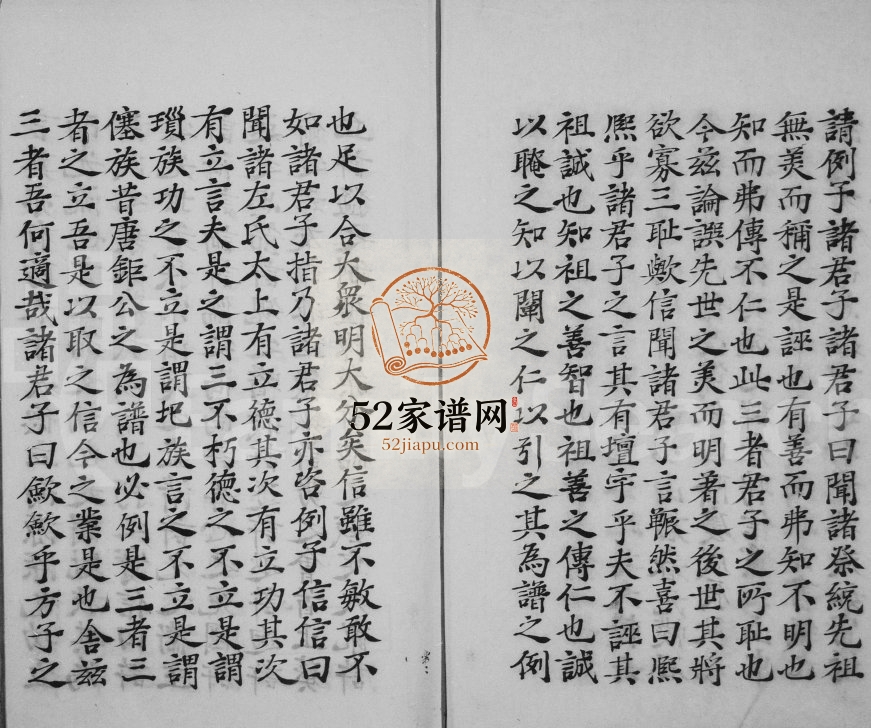 請例予諸君子諸君子曰聞諸祭統先祖
無羙而稱之是誣也有善而弗知不明也
知而弗傳不仁也此三者君子之所耻也
今兹論譔先世之羙而明著之後世其將
欲寡三耻歟信聞諸君子言輾然喜曰熈
熈乎諸君子之言其有壇宇乎夫不誣其
祖誠也知祖之善智也祖善之傳仁也誠
以聽之知以闡之仁以引之其為譜之例
也足以合大衆明大分矣信雖不敏敢不
如諸君子指乃諸君子亦咨例予信信曰
聞諸左氏太上有立德其次有立功其次
有立言夫是之謂三不朽德之不立是謂
瑣族功之不立是謂圯族言之不立是謂
僿族昔唐鉅公之為譜也必例是三者三
者之立吾是以取之信今之業是也舍兹
三者吾何適哉諸君子曰歉歉乎方子之
52家谱网
52jiapu.com